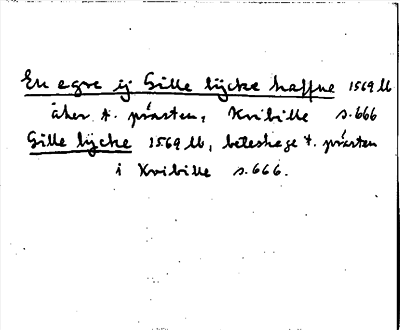 En egre ij Gille lÿcke haffue 1569 lb
åker t. prästen, Kvibille s. 666
Gille lÿcke 1569 lb, beteshage t. prästen
i Kvibille s. 666.